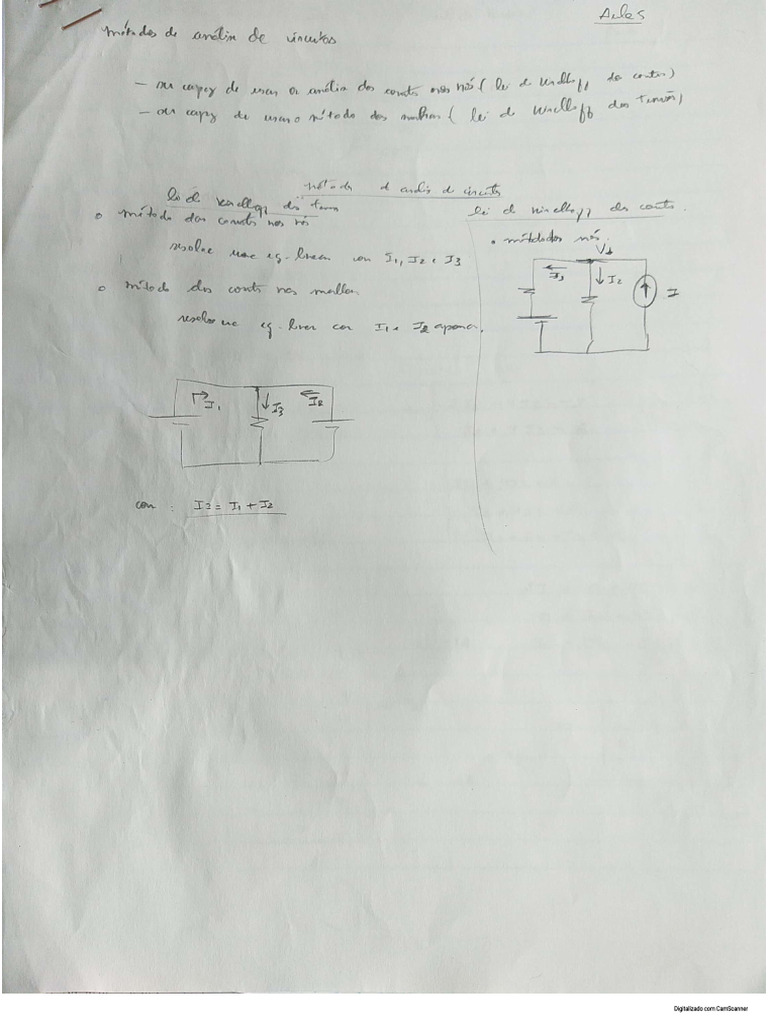 Aula 5
métodos de análise de circuitos
- ser capaz de usar a análise das correntes nos nós (lei de Kirchhoff das correntes)
- ser capaz de usar o método das malhas (lei de Kirchhoff das tensões)
métodos d análise d circuitos
lei de Kirchhoff das tensões
método das correntes nos nós
resolve uma eq. linear com I1, I2 e I3
método das correntes nas malhas
resolve uma eq. linear com I1 e I2 apenas.
I1 I3 I2
com : I3 = I1 + I2
lei d Kirchhoff das correntes.
método dos nós.
V1
I3 I2 I
Digitalizado com CamScanner